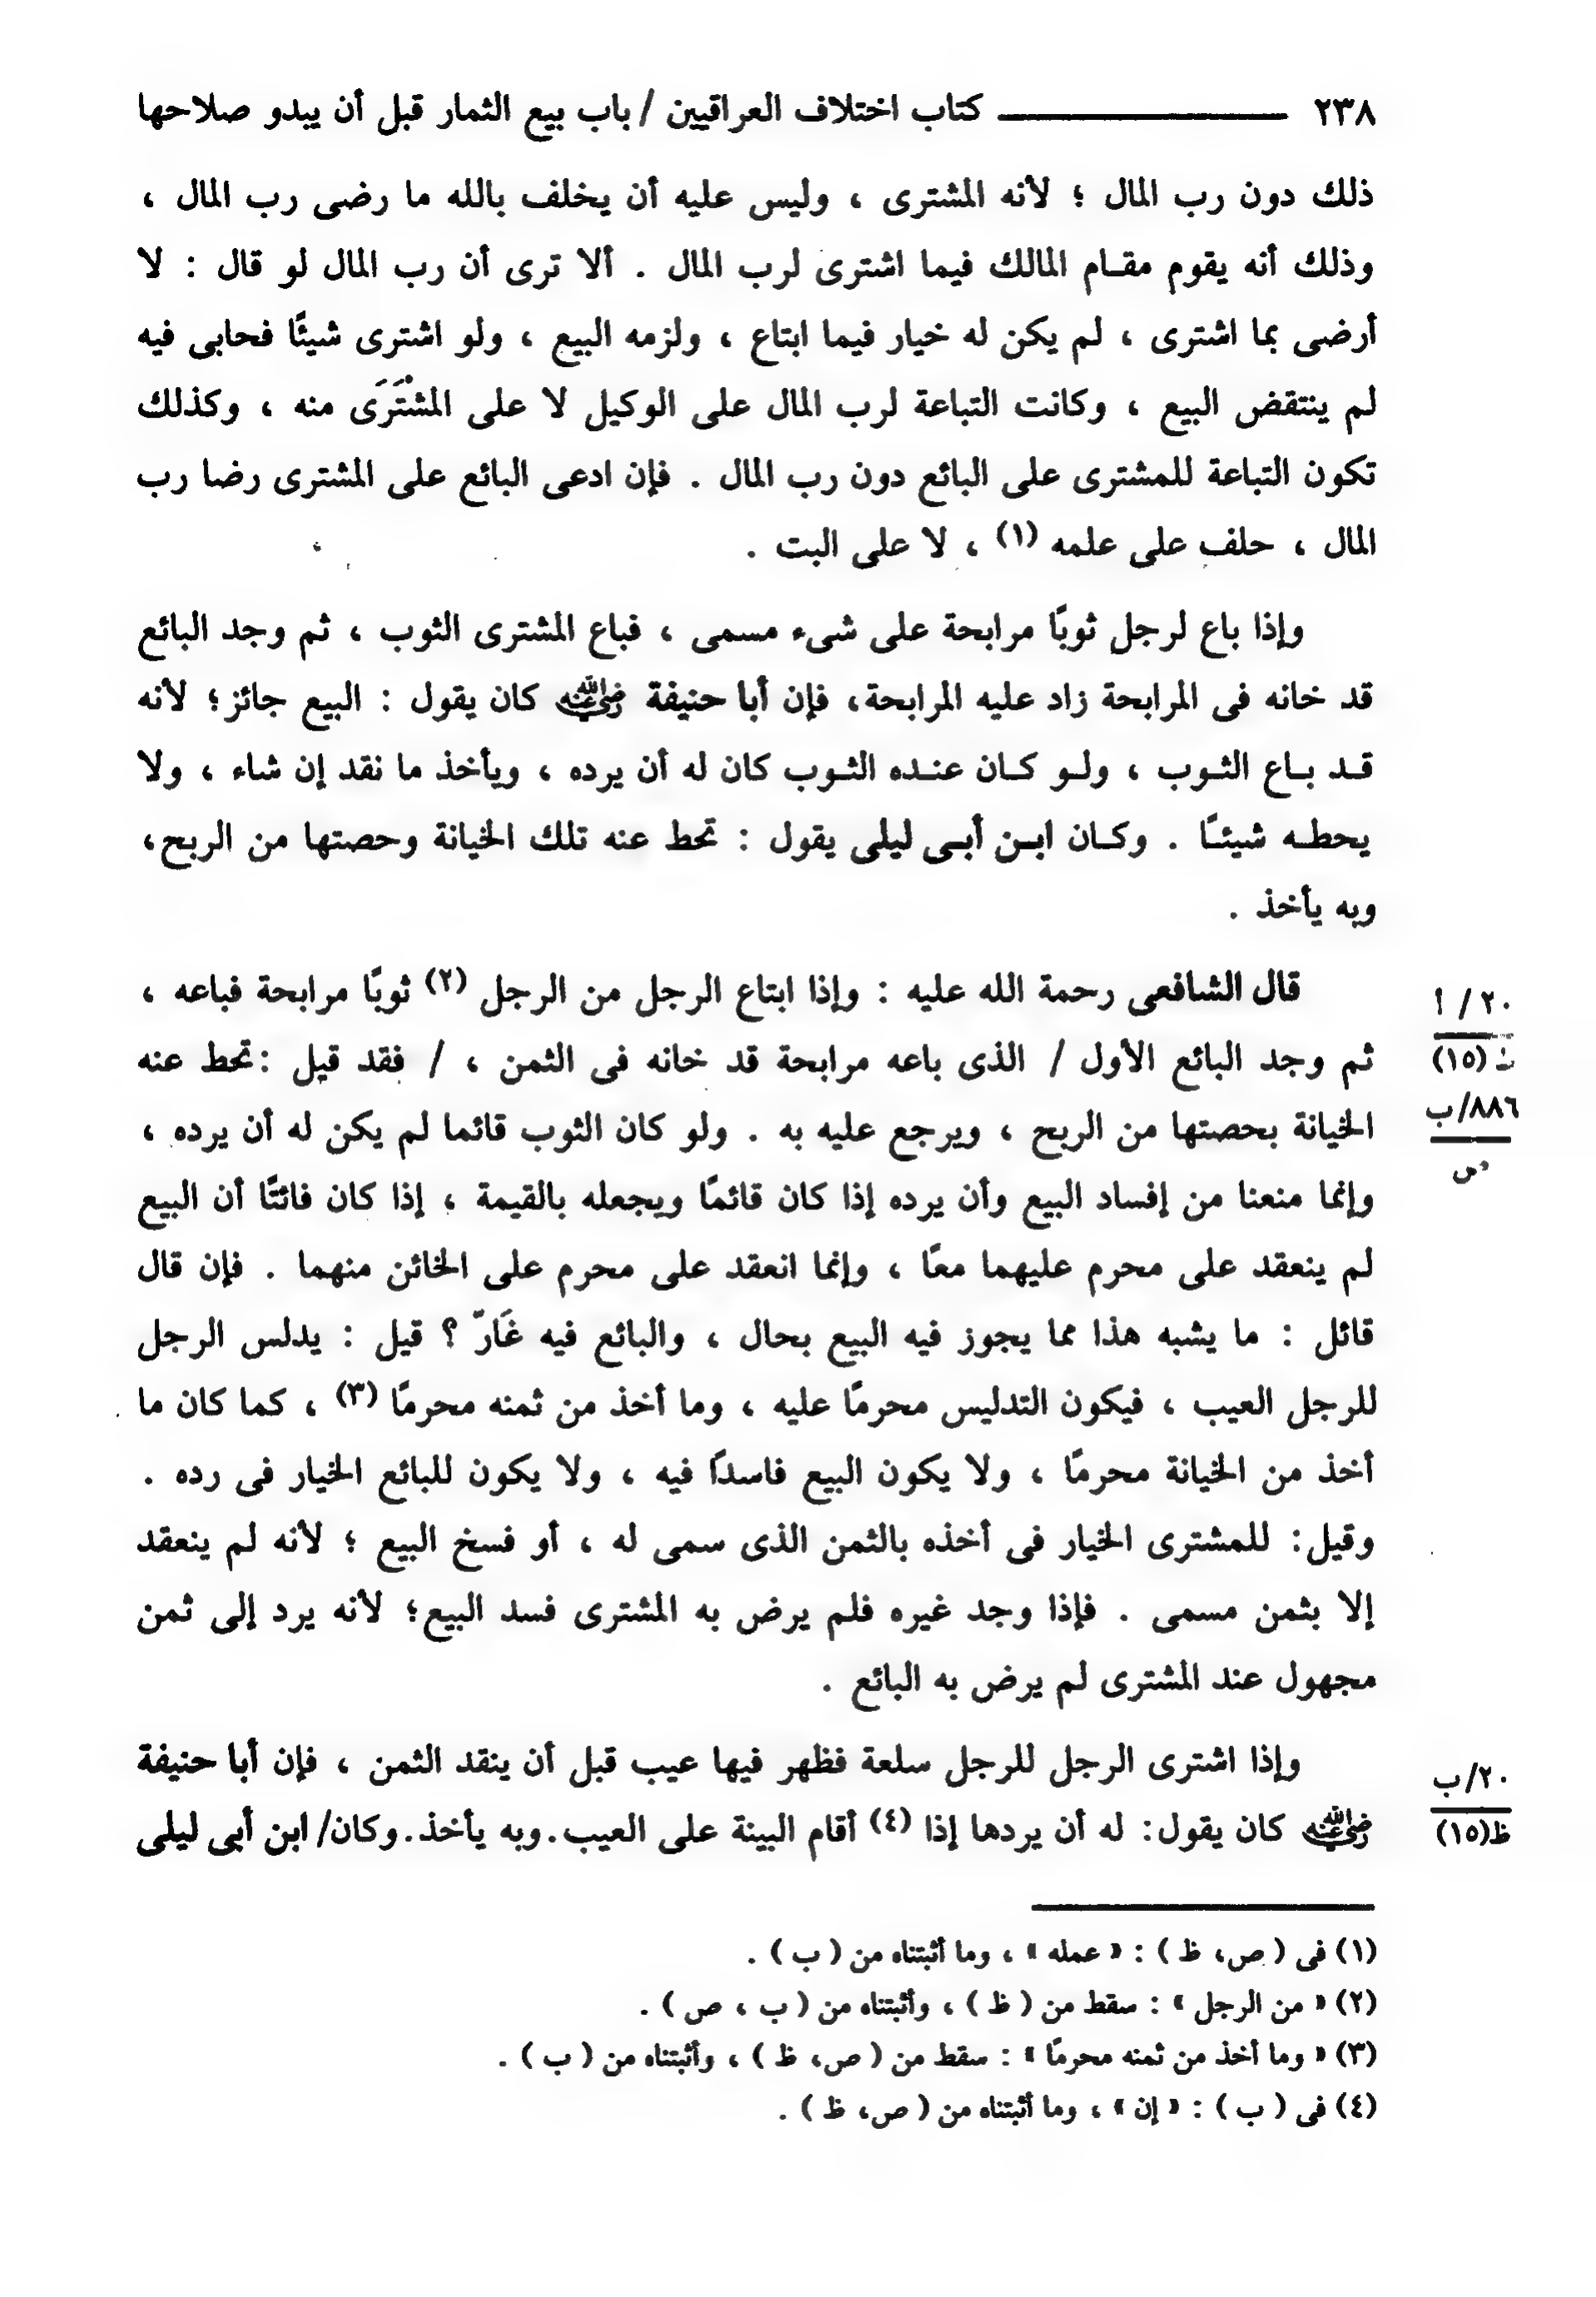 ٢٣٨ كتاب اختلاف العراقيين / باب بيع الثمار قبل أن يبدو صلاحها
ذلك دون رب المال ؛ لأنه المشترى ، وليس عليه أن يخلف بالله ما رضى رب المال ،
وذلك أنه يقوم مقـام المالك فيما اشترى لرب المال . ألا ترى أن رب المال لو قال : لا
أرضى بما اشترى ، لم يكن له خيار فيما ابتاع ، ولزمه البيع ، ولو اشترى شيئًا فحابى فيه
لم ينتقض البيع ، وكانت التباعة لرب المال على الوكيل لا على المشْتَرَى منه ، وكذلك
تكون التباعة للمشترى على البائع دون رب المال . فإن ادعى البائع على المشترى رضا رب
المال ، حلف على علمه (١) ، لا على البت .
وإذا باع لرجل ثوبًا مرابحة على شىء مسمى ، فباع المشترى الثوب ، ثم وجد البائع
قد خانه فى المرابحة زاد عليه المرابحة، فإن أبا حنيفة رضي الله عنه كان يقول : البيع جائز؛ لأنه
قـد بـاع الثـوب ، ولـو كـان عنـده الثـوب كان له أن يرده ، ويأخذ ما نقد إن شاء ، ولا
يحطـه شيئـًا . وكـان ابـن أبـى ليلى يقول : تحط عنه تلك الخيانة وحصتها من الربح،
وبه يأخذ .
قال الشافعى رحمة الله عليه : وإذا ابتاع الرجل من الرجل (٢) ثوبًا مرابحة فباعه ،
٢٠ / أ
ثم وجد البائع الأول / الذى باعه مرابحة قد خانه فى الثمن ، / فقد قيل :تحط عنه
(١٥)
الخيانة بحصتها من الربح ، ويرجع عليه به . ولو كان الثوب قائما لم يكن له أن يرده ،
٨٨٦/ب
ص
وإنما منعنا من إفساد البيع وأن يرده إذا كان قائمًا ويجعله بالقيمة ، إذا كان فائتًا أن البيع
لم ينعقد على محرم عليهما معًا ، وإنما انعقد على محرم على الخائن منهما . فإن قال
قائل : ما يشبه هذا مما يجوز فيه البيع بحال ، والبائع فيه غَارّ ؟ قيل : يدلس الرجل
للرجل العيب ، فيكون التدليس محرمًا عليه ، وما أخذ من ثمنه محرمًا (٣) ، كما كان ما
أخذ من الخيانة محرمًا ، ولا يكون البيع فاسدًا فيه ، ولا يكون للبائع الخيار فى رده .
وقيل: للمشترى الخيار فى أخذه بالثمن الذى سمى له ، أو فسخ البيع ؛ لأنه لم ينعقد
إلا بثمن مسمى . فإذا وجد غيره فلم يرض به المشترى فسد البيع؛ لأنه يرد إلى ثمن
مجهول عند المشترى لم يرض به البائع .
وإذا اشترى الرجل للرجل سلعة فظهر فيها عيب قبل أن ينقد الثمن ، فإن أبا حنيفة
٢٠/ب
رضي الله عنه كان يقول: له أن يردها إذا (٤) أقام البينة على العيب.وبه يأخذ.وكان/ ابن أبى ليلى
ظ(١٥)
(١) فى ( ص، ظ ) : « عمله » ، وما أثبتناه من ( ب ) .
(٢) « من الرجل » : سقط من ( ظ ) ، وأثبتناه من ( ب ، ص ) .
(٣) « وما أخذ من ثمنه محرمًا » : سقط من ( ص، ظ ) ، وأثبتناه من ( ب ) .
(٤) فى ( ب ) : « إن » ، وما أثبتناه من ( ص، ظ ) .